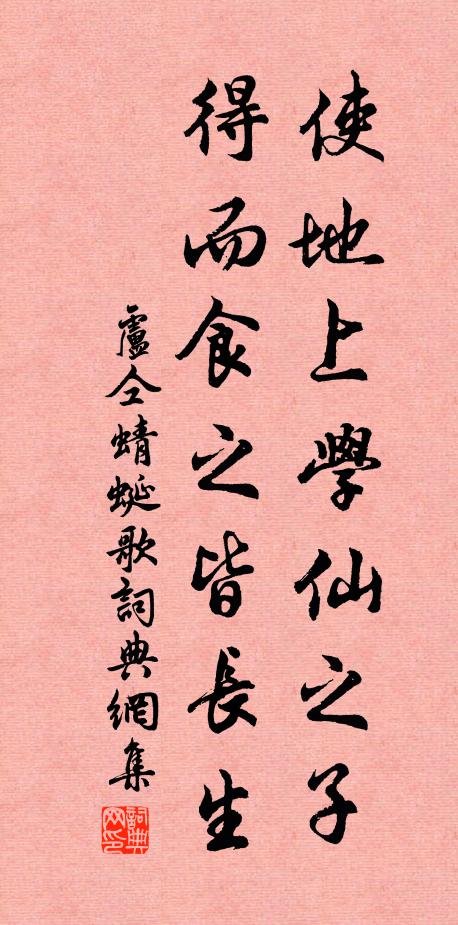 使地上學仙之子
得而食之皆長生
盧仝蜻蜒歌詞典網集
詞典
网印